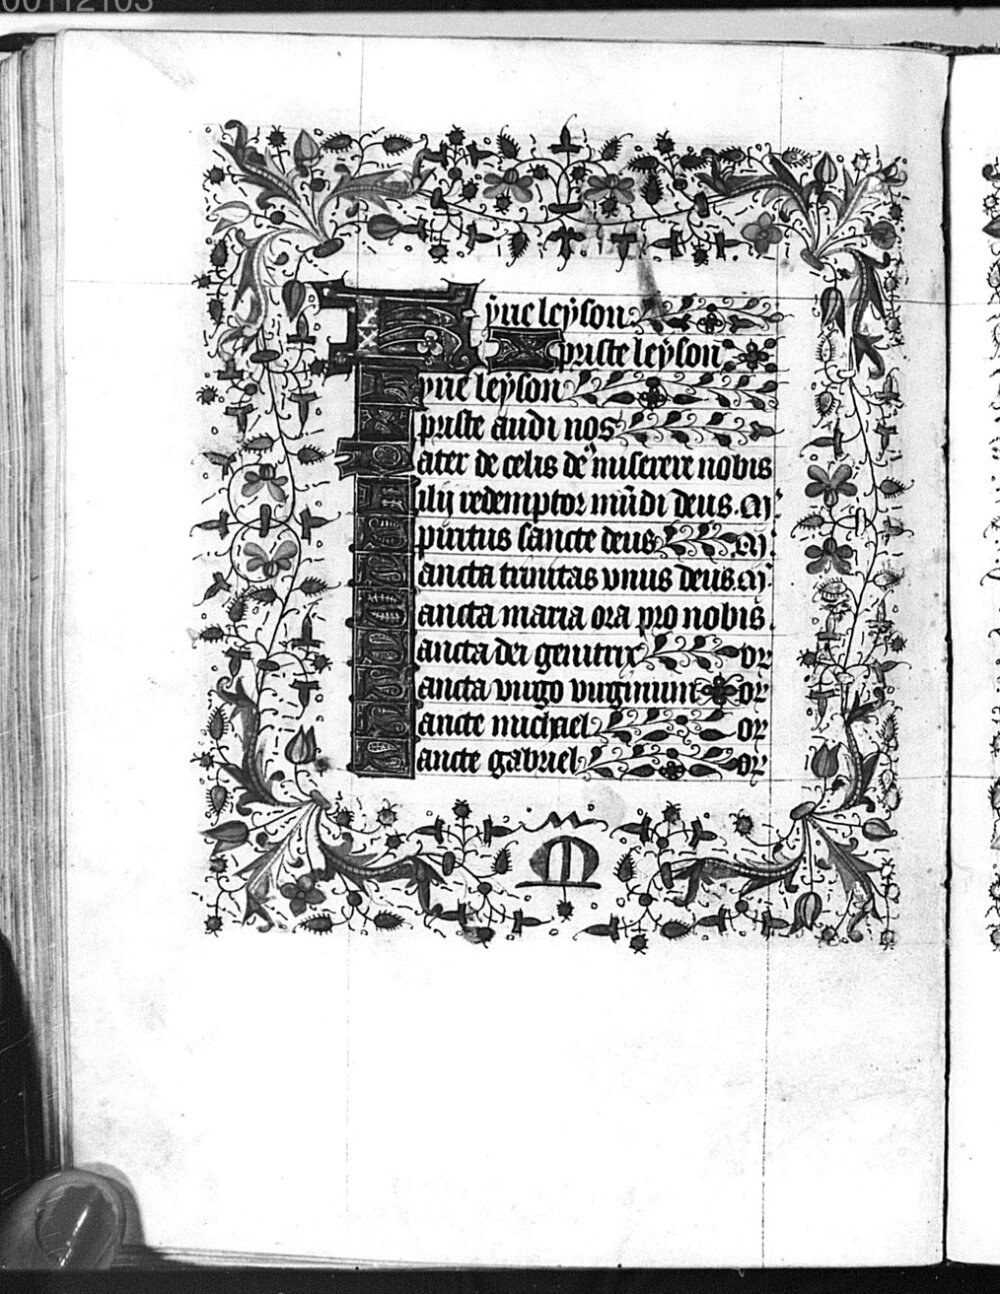 00112103
Kyrie leyson
Xpriste leyson
kyrie leyson
Xpriste audi nos
Pater de celis de9 miserere nobis
Filij redemptor mūdi deus. m̄
Spiritus sancte deus m̄
Sancta trinitas vnus deus m̄
Sancta maria ora pro nobis.
Sancta dei genitrix or
Sancta virgo virginum or
Sancte michael or
Sancte gabriel or
M